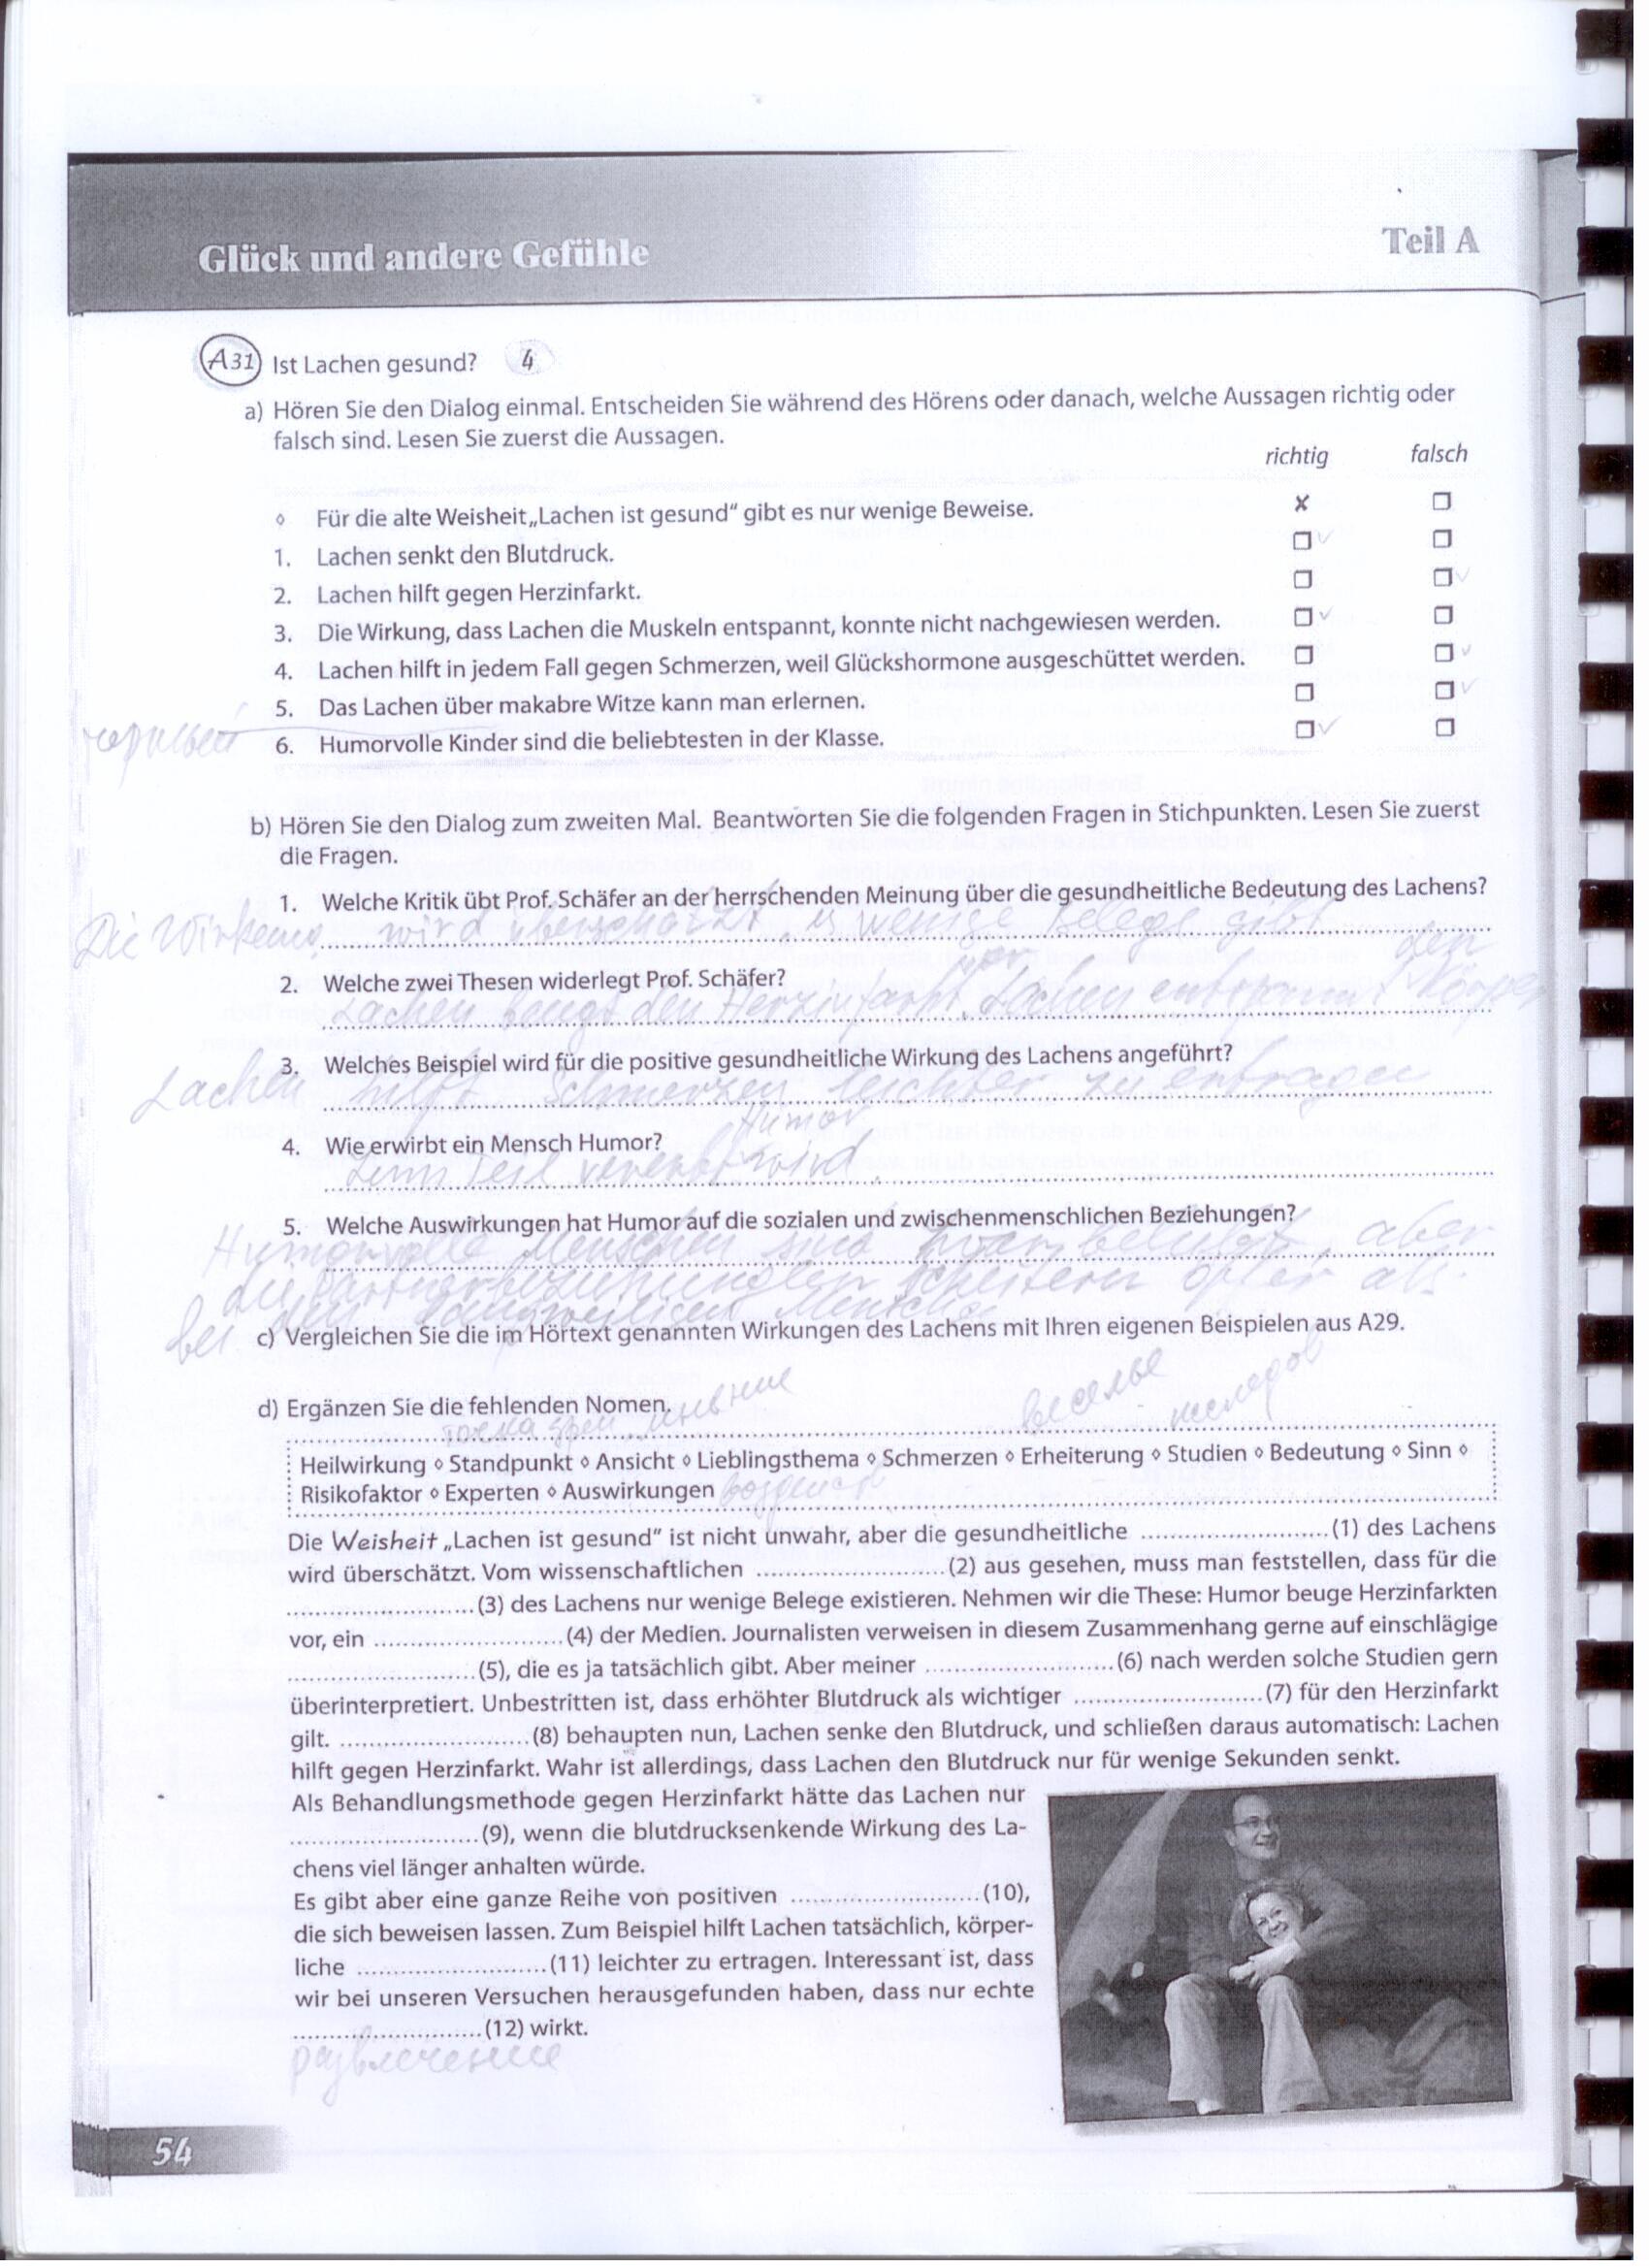 Glück und andere Gefühle
Teil A
A31 Ist Lachen gesund? 4
a) Hören Sie den Dialog einmal. Entscheiden Sie während des Hörens oder danach, welche Aussagen richtig oder
falsch sind. Lesen Sie zuerst die Aussagen.
richtig falsch
◊ Für die alte Weisheit „Lachen ist gesund“ gibt es nur wenige Beweise. ✗ ❒
1. Lachen senkt den Blutdruck. ❒ ✓ ❒
2. Lachen hilft gegen Herzinfarkt. ❒ ❒ ✓
3. Die Wirkung, dass Lachen die Muskeln entspannt, konnte nicht nachgewiesen werden. ❒ ✓ ❒
4. Lachen hilft in jedem Fall gegen Schmerzen, weil Glückshormone ausgeschüttet werden. ❒ ❒ ✓
5. Das Lachen über makabre Witze kann man erlernen. ❒ ❒ ✓
6. Humorvolle Kinder sind die beliebtesten in der Klasse. ❒ ✓ ❒
b) Hören Sie den Dialog zum zweiten Mal. Beantworten Sie die folgenden Fragen in Stichpunkten. Lesen Sie zuerst
die Fragen.
1. Welche Kritik übt Prof. Schäfer an der herrschenden Meinung über die gesundheitliche Bedeutung des Lachens?
Die wird überschätzt, es wenige Belege gibt
2. Welche zwei Thesen widerlegt Prof. Schäfer?
vor den
Lachen beugt den Herzinfarkt, Lachen entspannt Körper
3. Welches Beispiel wird für die positive gesundheitliche Wirkung des Lachens angeführt?
Lachen hilft Schmerzen leichter zu ertragen
4. Wie erwirbt ein Mensch Humor?
Humor
Zum Teil vererbt wird.
5. Welche Auswirkungen hat Humor auf die sozialen und zwischenmenschlichen Beziehungen?
Humorvolle Menschen sind zwar beliebt, aber
die Partnerbeziehungen scheitern öfter als
bei den langweiligen Menschen
c) Vergleichen Sie die im Hörtext genannten Wirkungen des Lachens mit Ihren eigenen Beispielen aus A29.
d) Ergänzen Sie die fehlenden Nomen.
точка зрен мнение веселье
Heilwirkung ◊ Standpunkt ◊ Ansicht ◊ Lieblingsthema ◊ Schmerzen ◊ Erheiterung ◊ Studien ◊ Bedeutung ◊ Sinn ◊
Risikofaktor ◊ Experten ◊ Auswirkungen
Die Weisheit „Lachen ist gesund“ ist nicht unwahr, aber die gesundheitliche ........................... (1) des Lachens
wird überschätzt. Vom wissenschaftlichen ........................... (2) aus gesehen, muss man feststellen, dass für die
........................... (3) des Lachens nur wenige Belege existieren. Nehmen wir die These: Humor beuge Herzinfarkten
vor, ein ........................... (4) der Medien. Journalisten verweisen in diesem Zusammenhang gerne auf einschlägige
........................... (5), die es ja tatsächlich gibt. Aber meiner ........................... (6) nach werden solche Studien gern
überinterpretiert. Unbestritten ist, dass erhöhter Blutdruck als wichtiger ........................... (7) für den Herzinfarkt
gilt. ........................... (8) behaupten nun, Lachen senke den Blutdruck, und schließen daraus automatisch: Lachen
hilft gegen Herzinfarkt. Wahr ist allerdings, dass Lachen den Blutdruck nur für wenige Sekunden senkt.
Als Behandlungsmethode gegen Herzinfarkt hätte das Lachen nur
........................... (9), wenn die blutdrucksenkende Wirkung des La-
chens viel länger anhalten würde.
Es gibt aber eine ganze Reihe von positiven ........................... (10),
die sich beweisen lassen. Zum Beispiel hilft Lachen tatsächlich, körper-
liche ........................... (11) leichter zu ertragen. Interessant ist, dass
wir bei unseren Versuchen herausgefunden haben, dass nur echte
........................... (12) wirkt.
развлечение
54